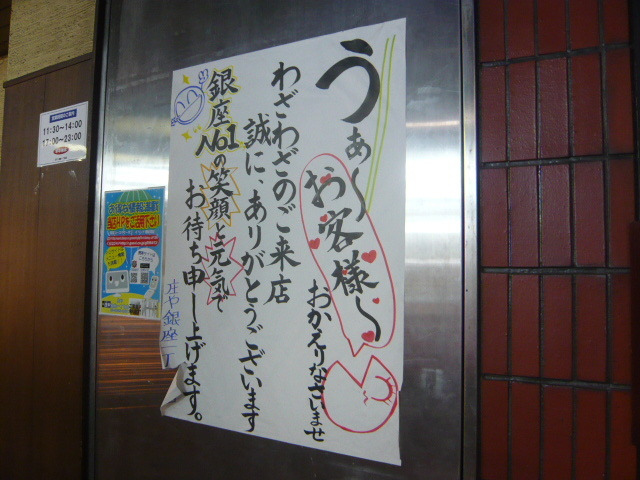 うぁ〜お客様〜
おかえりなさいませ
わざわざのご来店
誠に、ありがとうございます
銀座No.1の笑顔と元気で
お待ち申し上げます。
庄や銀座一丁
11:30〜14:00
17:00〜23:00